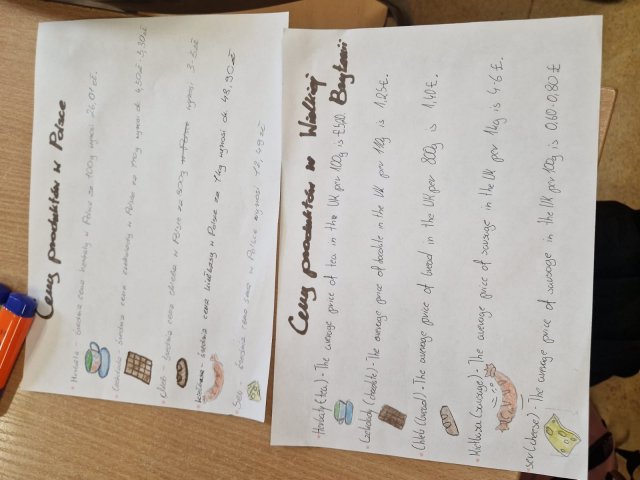 Ceny produktów w Polsce
Herbata - średnia cena herbaty w Polsce za 100g wynosi 26,01 zł.
Czekolada - średnia cena czekolady w Polsce za 100g wynosi ok 4,50zł-5,30zł
Chleb - średnia cena chleba w Polsce za 500g wynosi 3-5zł
Kiełbasa - średnia cena kiełbasy w Polsce za 1kg wynosi ok 48,90zł
Ser - średnia cena sera w Polsce wynosi
Ceny produktów w Wielkiej
Brytanii
Herbaty (tea) - The average price of tea in the UK per 100g is
Czekolady (chocolate) - The average price of chocolate in the UK per is 1,25£.
Chleb (bread) - The average price of bread in the UK per 800g is 1,40£.
Kiełbasa (sausage) - The average price of sausage in the UK per 1kg is 4,6£.
ser (cheese) - The average price of sausage in the UK per 100g is 0,60-0,80£